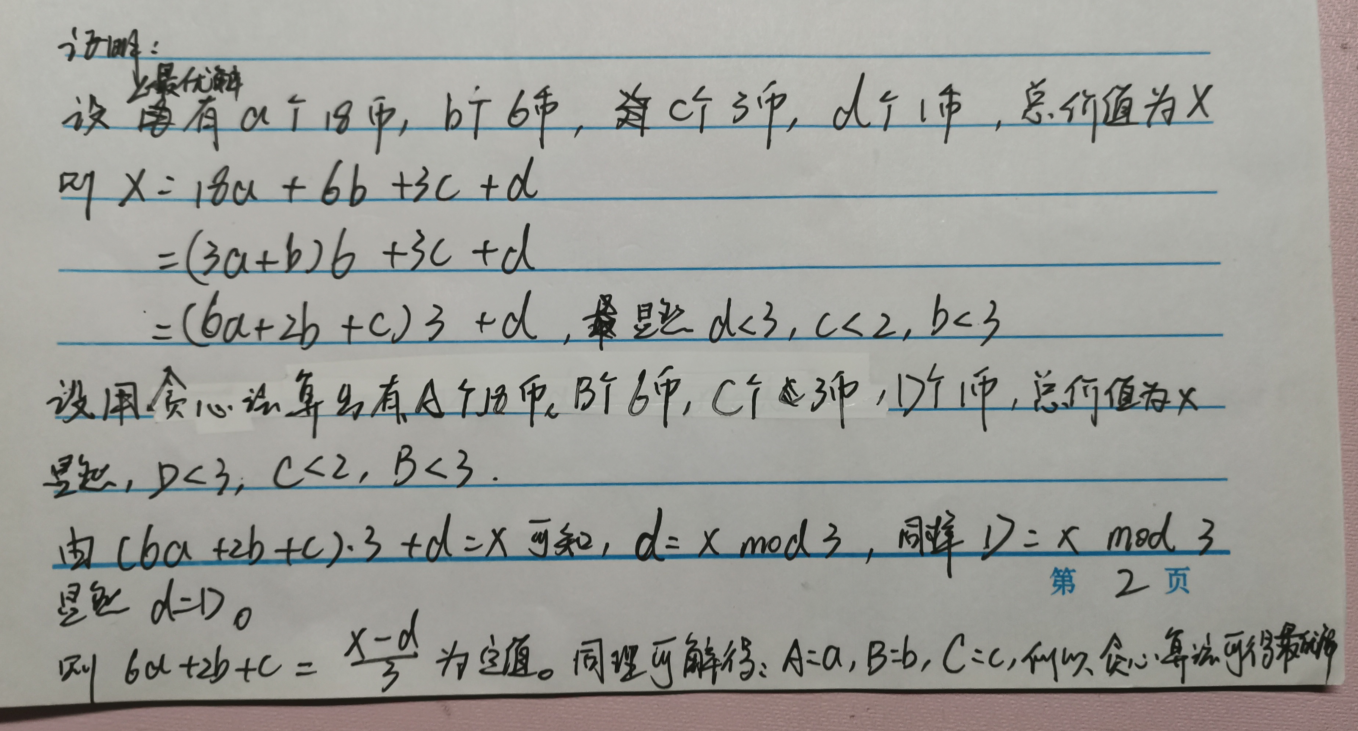 证明:
最优解
设有a个18币, b个6币, c个3币, d个1币, 总价值为X
则 X = 18a + 6b + 3c + d
= (3a+b)6 + 3c + d
= (6a+2b+c)3 + d, 显然 d<3, c<2, b<3
设用贪心法算出有A个18币, B个6币, C个3币, D个1币, 总价值为x
显然, D<3, C<2, B<3.
由 (6a+2b+c)·3+d=x 可知, d= x mod 3, 同样 D= x mod 3
第 2 页
显然 d=D。
则 6a+2b+c = \frac{x-d}{3} 为定值。同理可解得: A=a, B=b, C=c, 所以贪心算法可得最优解